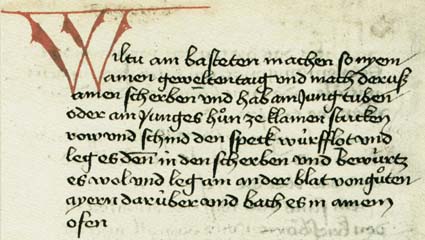 Wiltu am basteten machen so nyem
amen gewelten taig und mach der uß
amen scherben und hab am Jung tuben
oder am Junges hůn ze klamen stucken
row und schind den speck würfflot und
leg es denn in den scherben und bewürtz
es wol und leg am ander blat von gůten
ayern darüber und bach es in amem
ofen